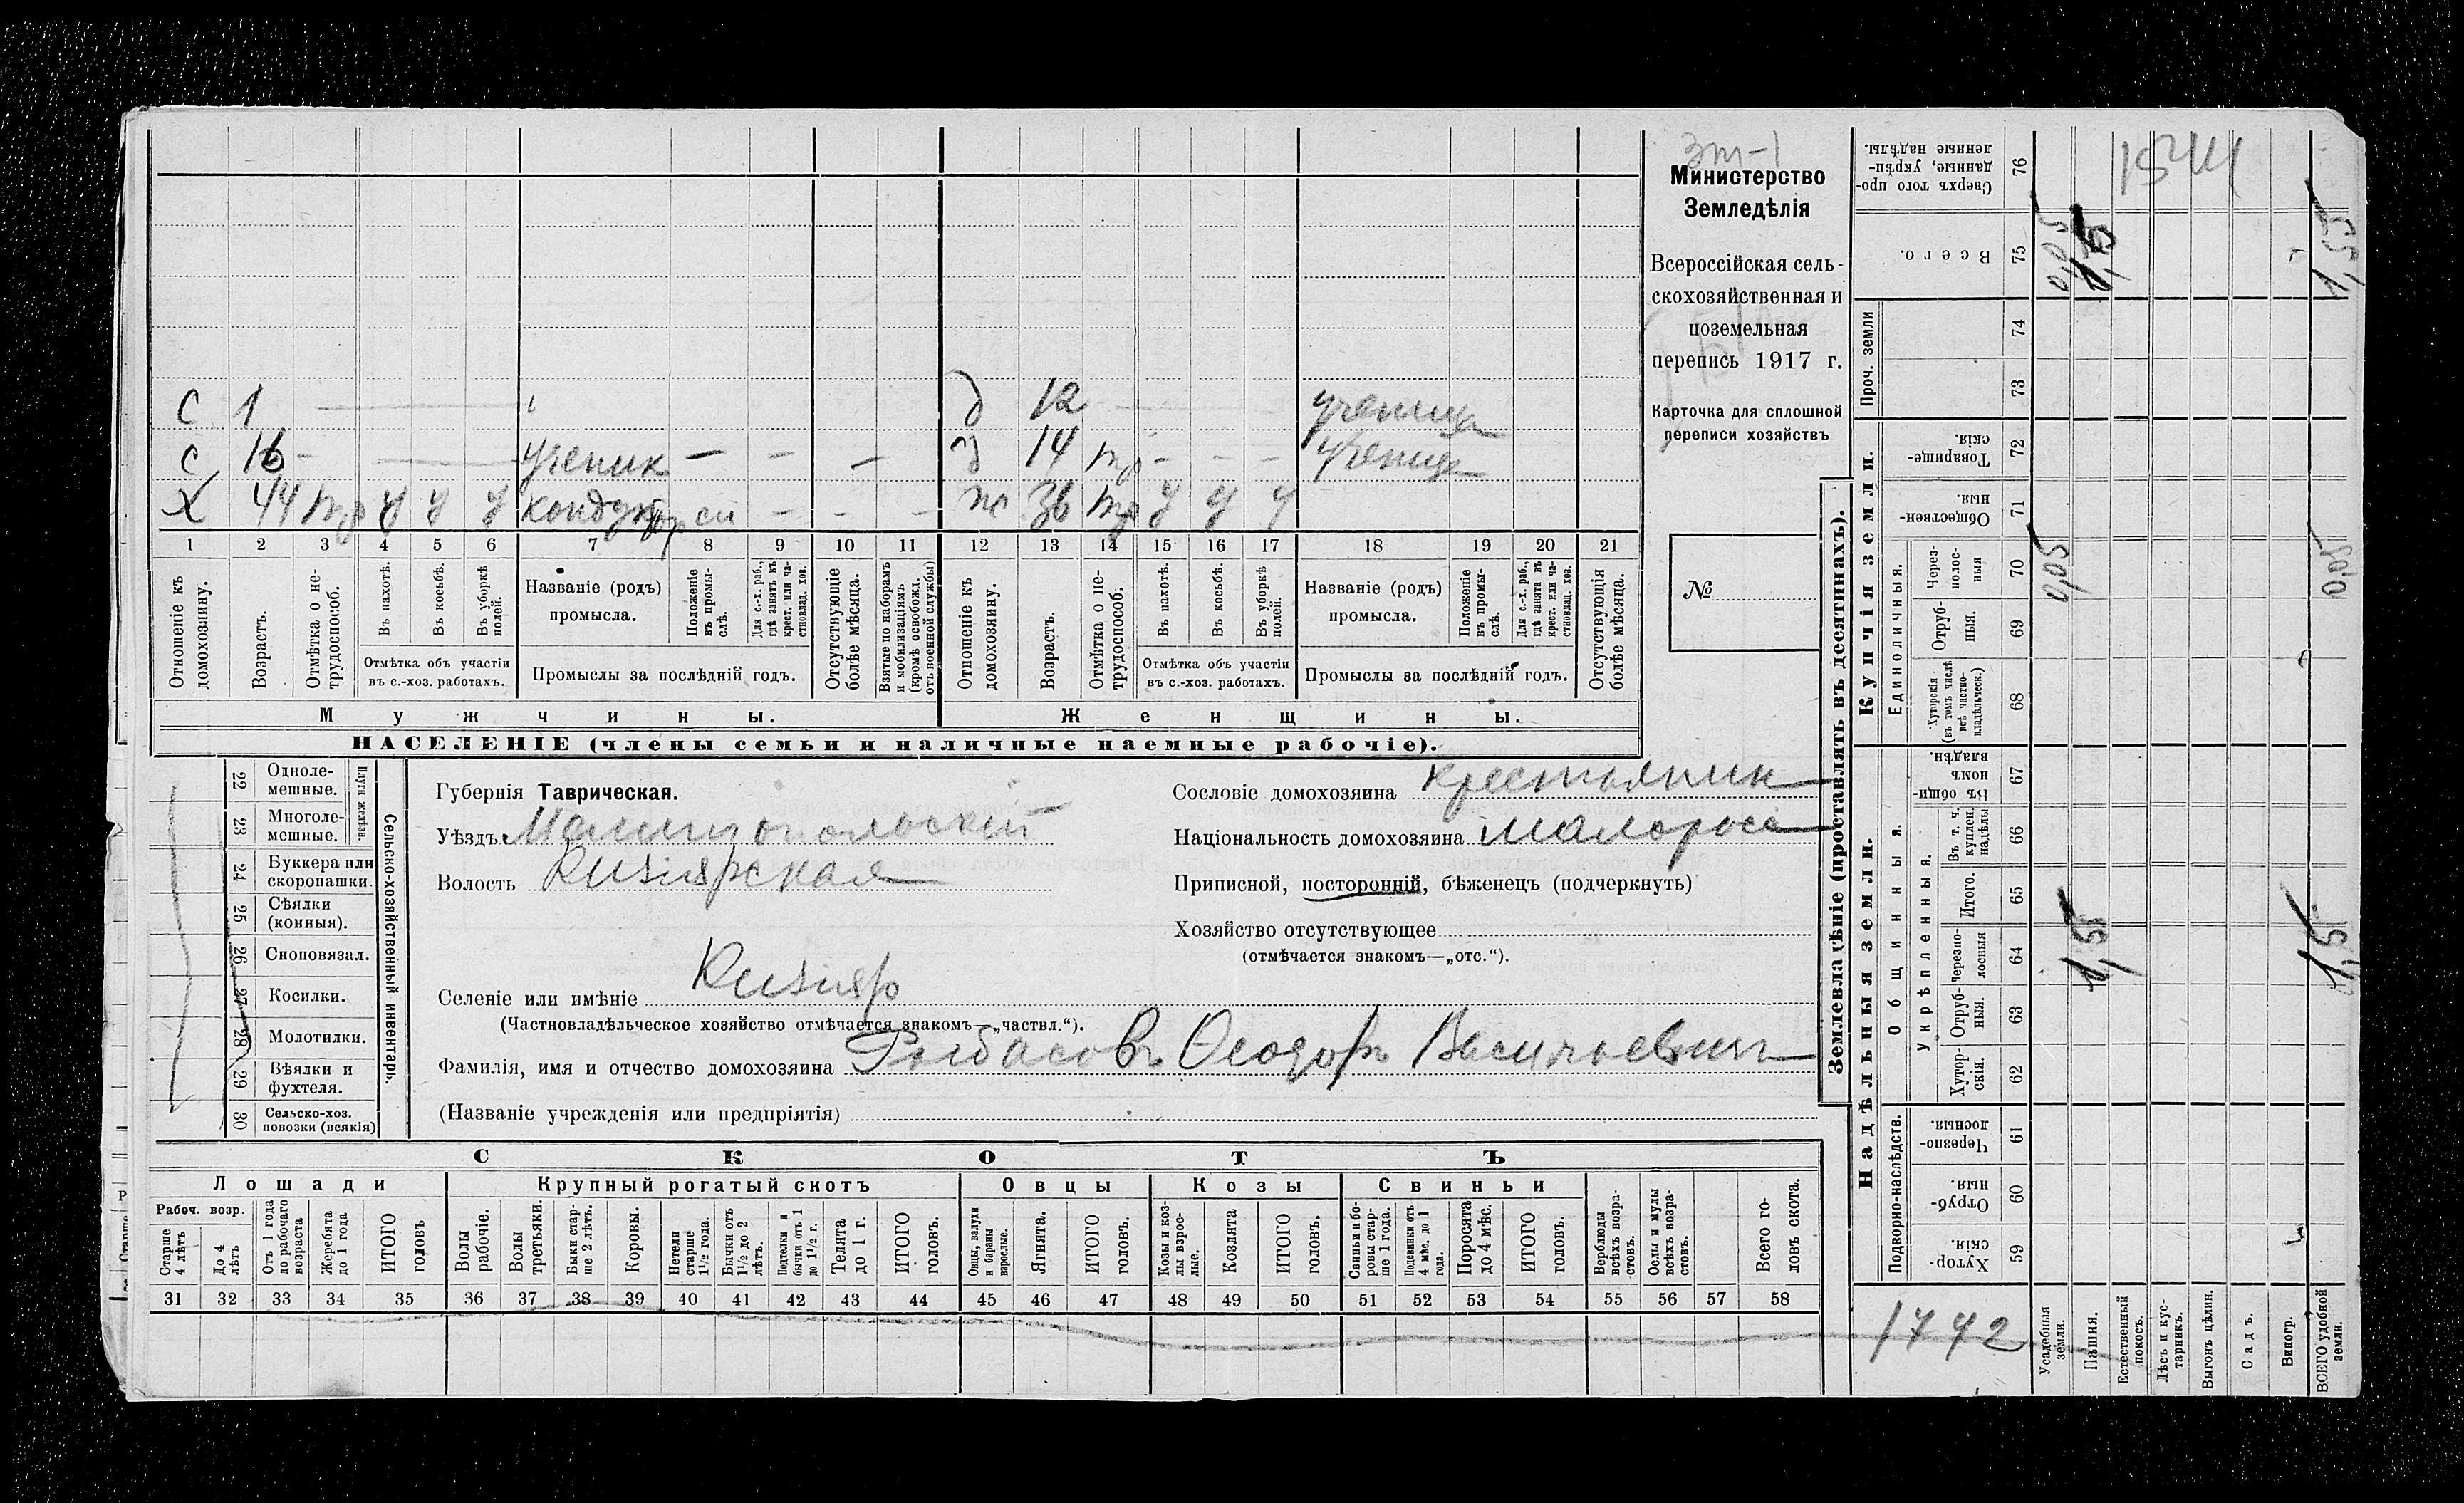 зт-1
Министерство
Земледѣлія
Всероссійская сель-
скохозяйственная и
поземельная
перепись 1917 г.
Карточка для сплошной
переписи хозяйствъ
№
с 1 д 12 ученица
с 16 - ученик - - - д 14 тр - - - ученица
х 44 тр у у у кондуктор сл - - - ж 36 тр у у у
1 2 3 4 5 6 7 8 9 10 11 12 13 14 15 16 17 18 19 20 21
Отношеніе къ домохозяину.
Возрастъ.
Отмѣтка о не-трудоспособ.
Въ пахотѣ.
Въ косьбѣ.
Въ уборкѣ полей.
Отмѣтка объ участіи
въ с.-хоз. работахъ.
Названіе (родъ)
промысла.
Положеніе въ промы-слѣ.
Для с.-х. раб., гдѣ занятъ въ крест. или ча-стновлад. хоз.
Промыслы за послѣдній годъ.
Отсутствующіе болѣе мѣсяца.
Взятые по наборамъ и мобилизаціямъ (кромѣ освобожд. отъ военной службы)
Отношеніе къ домохозяину.
Возрастъ.
Отмѣтка о не-трудоспособ.
Въ пахотѣ.
Въ косьбѣ.
Въ уборкѣ полей.
Отмѣтка объ участіи
въ с.-хоз. работахъ.
Названіе (родъ)
промысла.
Положеніе въ промы-слѣ.
Для с.-х. раб., гдѣ занята въ крест. или ча-стновлад. хоз.
Промыслы за послѣдній годъ.
Отсутствующія болѣе мѣсяца.
Мужчины. Женщины.
НАСЕЛЕНІЕ (члены семьи и наличные наемные рабочіе).
22 Одноле-мешные.
23 Многоле-мешные.
Плуги желѣзн.
24 Буккера или скоропашки.
25 Сѣялки (конныя).
26 Сноповязал.
27 Косилки.
28 Молотилки.
29 Вѣялки и фухтеля.
30 Сельско-хоз. повозки (всякія)
Сельско-хозяйственный инвентарь.
Губернія Таврическая.
Уѣздъ Мелитопольскій
Волость Кизіярская
Селеніе или имѣніе Кизияр
(Частновладѣльческое хозяйство отмѣчается знакомъ—„частвл.“).
Фамилія, имя и отчество домохозяина Рылбасовъ Ѳеодоръ Васильевич
(Названіе учрежденія или предпріятія)
Сословіе домохозяина крестьянин
Національность домохозяина малоросс
Приписной, посторонній, бѣженецъ (подчеркнуть)
Хозяйство отсутствующее
(отмѣчается знакомъ—„отс.“).
СКОТЪ
Лошади Крупный рогатый скотъ Овцы Козы Свиньи
Рабоч. возр.
Старше 4 лѣтъ
До 4 лѣтъ
Отъ 1 года до рабочаго возраста
Жеребята до 1 года
ИТОГО головъ
Волы рабочіе.
Волы третьяки.
Быки стар-ше 2 лѣтъ.
Коровы.
Нетели старше 1½ года.
Бычки отъ 1½ до 2 лѣтъ.
Подтелки и бычки отъ 1 до 1½ г.
Телята до 1 г.
ИТОГО головъ.
Овцы, валухи и бараны взрослые.
Ягнята.
ИТОГО головъ.
Козы и коз-лы взрос-лые.
Козлята
ИТОГО головъ.
Свиньи и бо-ровы стар-ше 1 года.
Подсвинки отъ 4 мѣс. до 1 года.
Поросята до 4 мѣс.
ИТОГО головъ.
Верблюды всѣхъ возра-стовъ.
Ослы и мулы всѣхъ возра-стовъ.
Всего го-ловъ скота.
31 32 33 34 35 36 37 38 39 40 41 42 43 44 45 46 47 48 49 50 51 52 53 54 55 56 57 58
Землевладѣніе (проставлять въ десятинахъ).
Надѣльныя земли. Купчія земли. Проч. земли
Подворно-наслѣдств.
Общинныя.
Укрѣпленныя.
Единоличныя.
Хутор-скія. 59
Отруб-ныя. 60
Черезпо-лосныя. 61
Хутор-скія. 62
Отруб-ныя. 63
Черезпо-лосныя 64
Итого. 65
Въ т. ч. куплен. надѣлы 66
Въ общи-номъ владѣн. 67
Хуторскія (въ томъ числѣ всѣ частно-владѣльческ.) 68
Отруб-ныя. 69
Через-полос-ныя 70
Обществен-ныя. 71
Товарище-скія. 72
73
74
Всего. 75
Сверхъ того про-данные, укрѣп-ленные надѣлы. 76
Усадебныя земли.
Пашня.
Естественный покосъ.
Лѣсъ и кус-тарникъ.
Выгонъ цѣлин.
Садъ.
Виногр.
ВСЕГО удобной земли.
0,05 0,05
1,5 1,5
0,05 1,5 1,55
1742